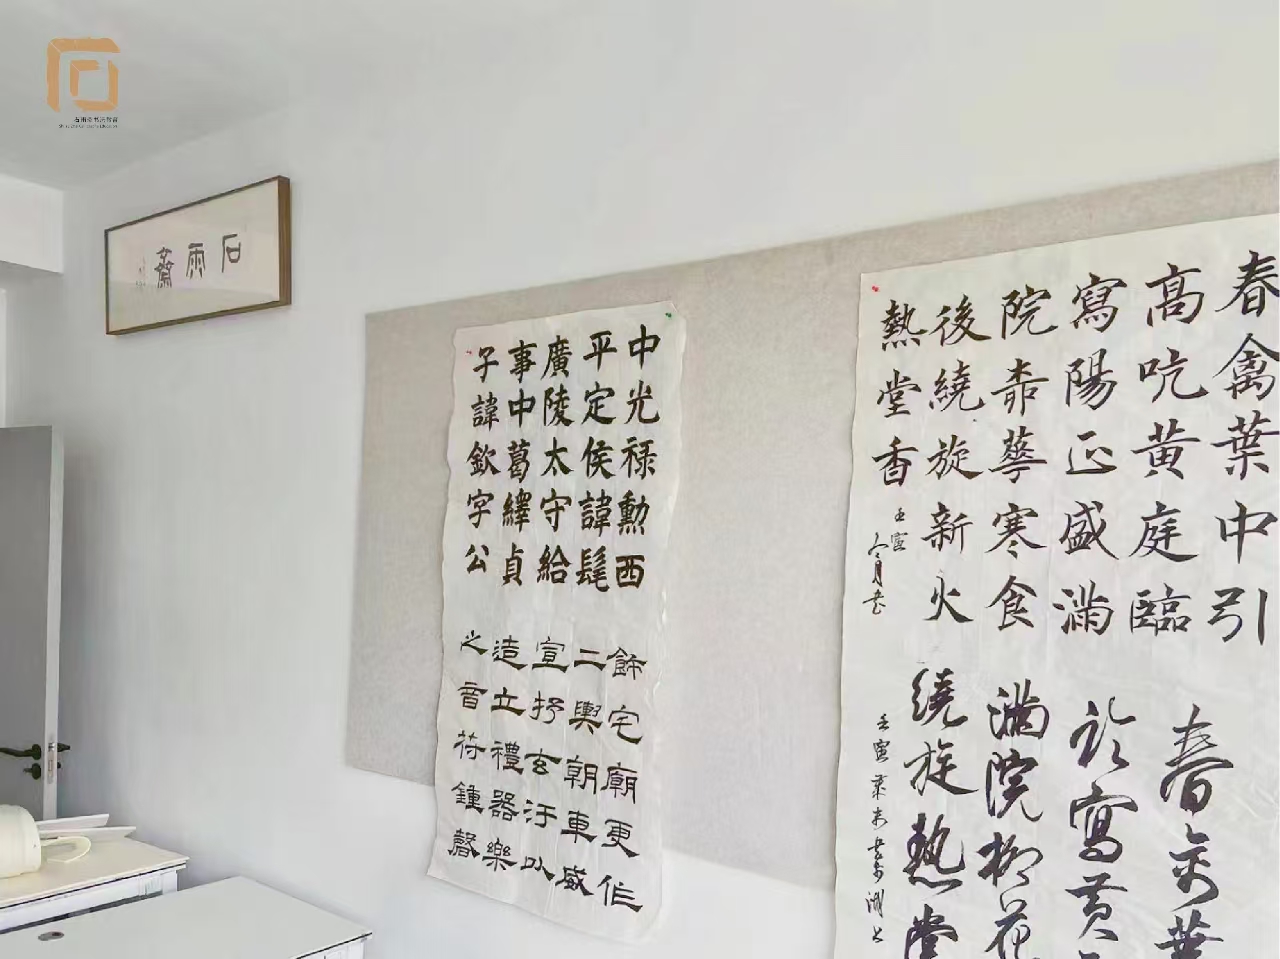 石雨齋
中光祿勳西
平定侯諱髦
廣陵太守給
事中葛繹貞
子諱欽字公
飾宅廟更作
二輿朝車威
宣抒玄汙以
造立禮器樂
之音符鍾磬
春禽葉中引
高吭黃庭臨
寫陽正盛滿
院柰華寒食
後繞旋新火
熱堂香
壬寅
月書
春禽葉
寫黃
滿院柳花
繞旋熱堂